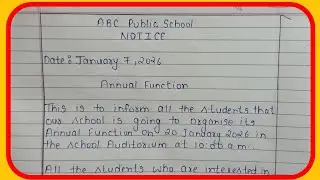 ABC Public School
NOTICE
Date: January 7, 2026
Annual Function
This is to inform all the students that
our school is going to organise its
Annual Function on 20 January 2026 in
the school Auditorium at 10:00 a.m.
All the students who are interested in